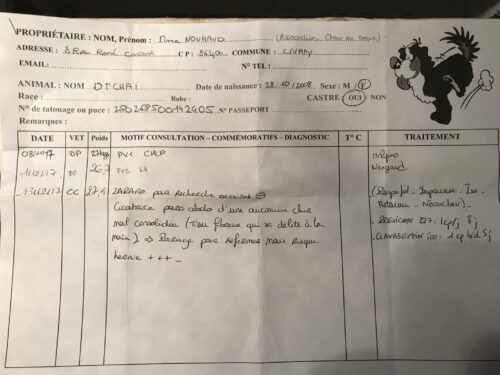 PROPRIÉTAIRE : NOM, Prénom : Mme NOUHAUD (Association Chien du coeur)
ADRESSE : 8 Rue René Caisson CP : 86400 COMMUNE : CIVRAY
EMAIL: N° TEL :
ANIMAL: NOM DTCHAI Date de naissance : 28/10/2008 Sexe : M / F
Race : Robe : CASTRE OUI / NON
N° de tatouage ou puce : 250268500192405 N° PASSEPORT :
Remarques :
DATE VET Poids MOTIF CONSULTATION – COMMÉMORATIFS – DIAGNOSTIC T°C TRAITEMENT
DP PV1 CHLP milpro
26,7 PV2 L4 Nexgard
CC 27,1 LAPARO pour recherche ovaires
Cicatrice paroi abdo d'une ancienne chir
mal consolidée (tissu fibreux qui se délite à la
main) => Parage pour refermer mais risque
hernie +++
Revicoss 227. 1cp/j 8j
CLAVASEPTIN 500. 1 cp bid 5j